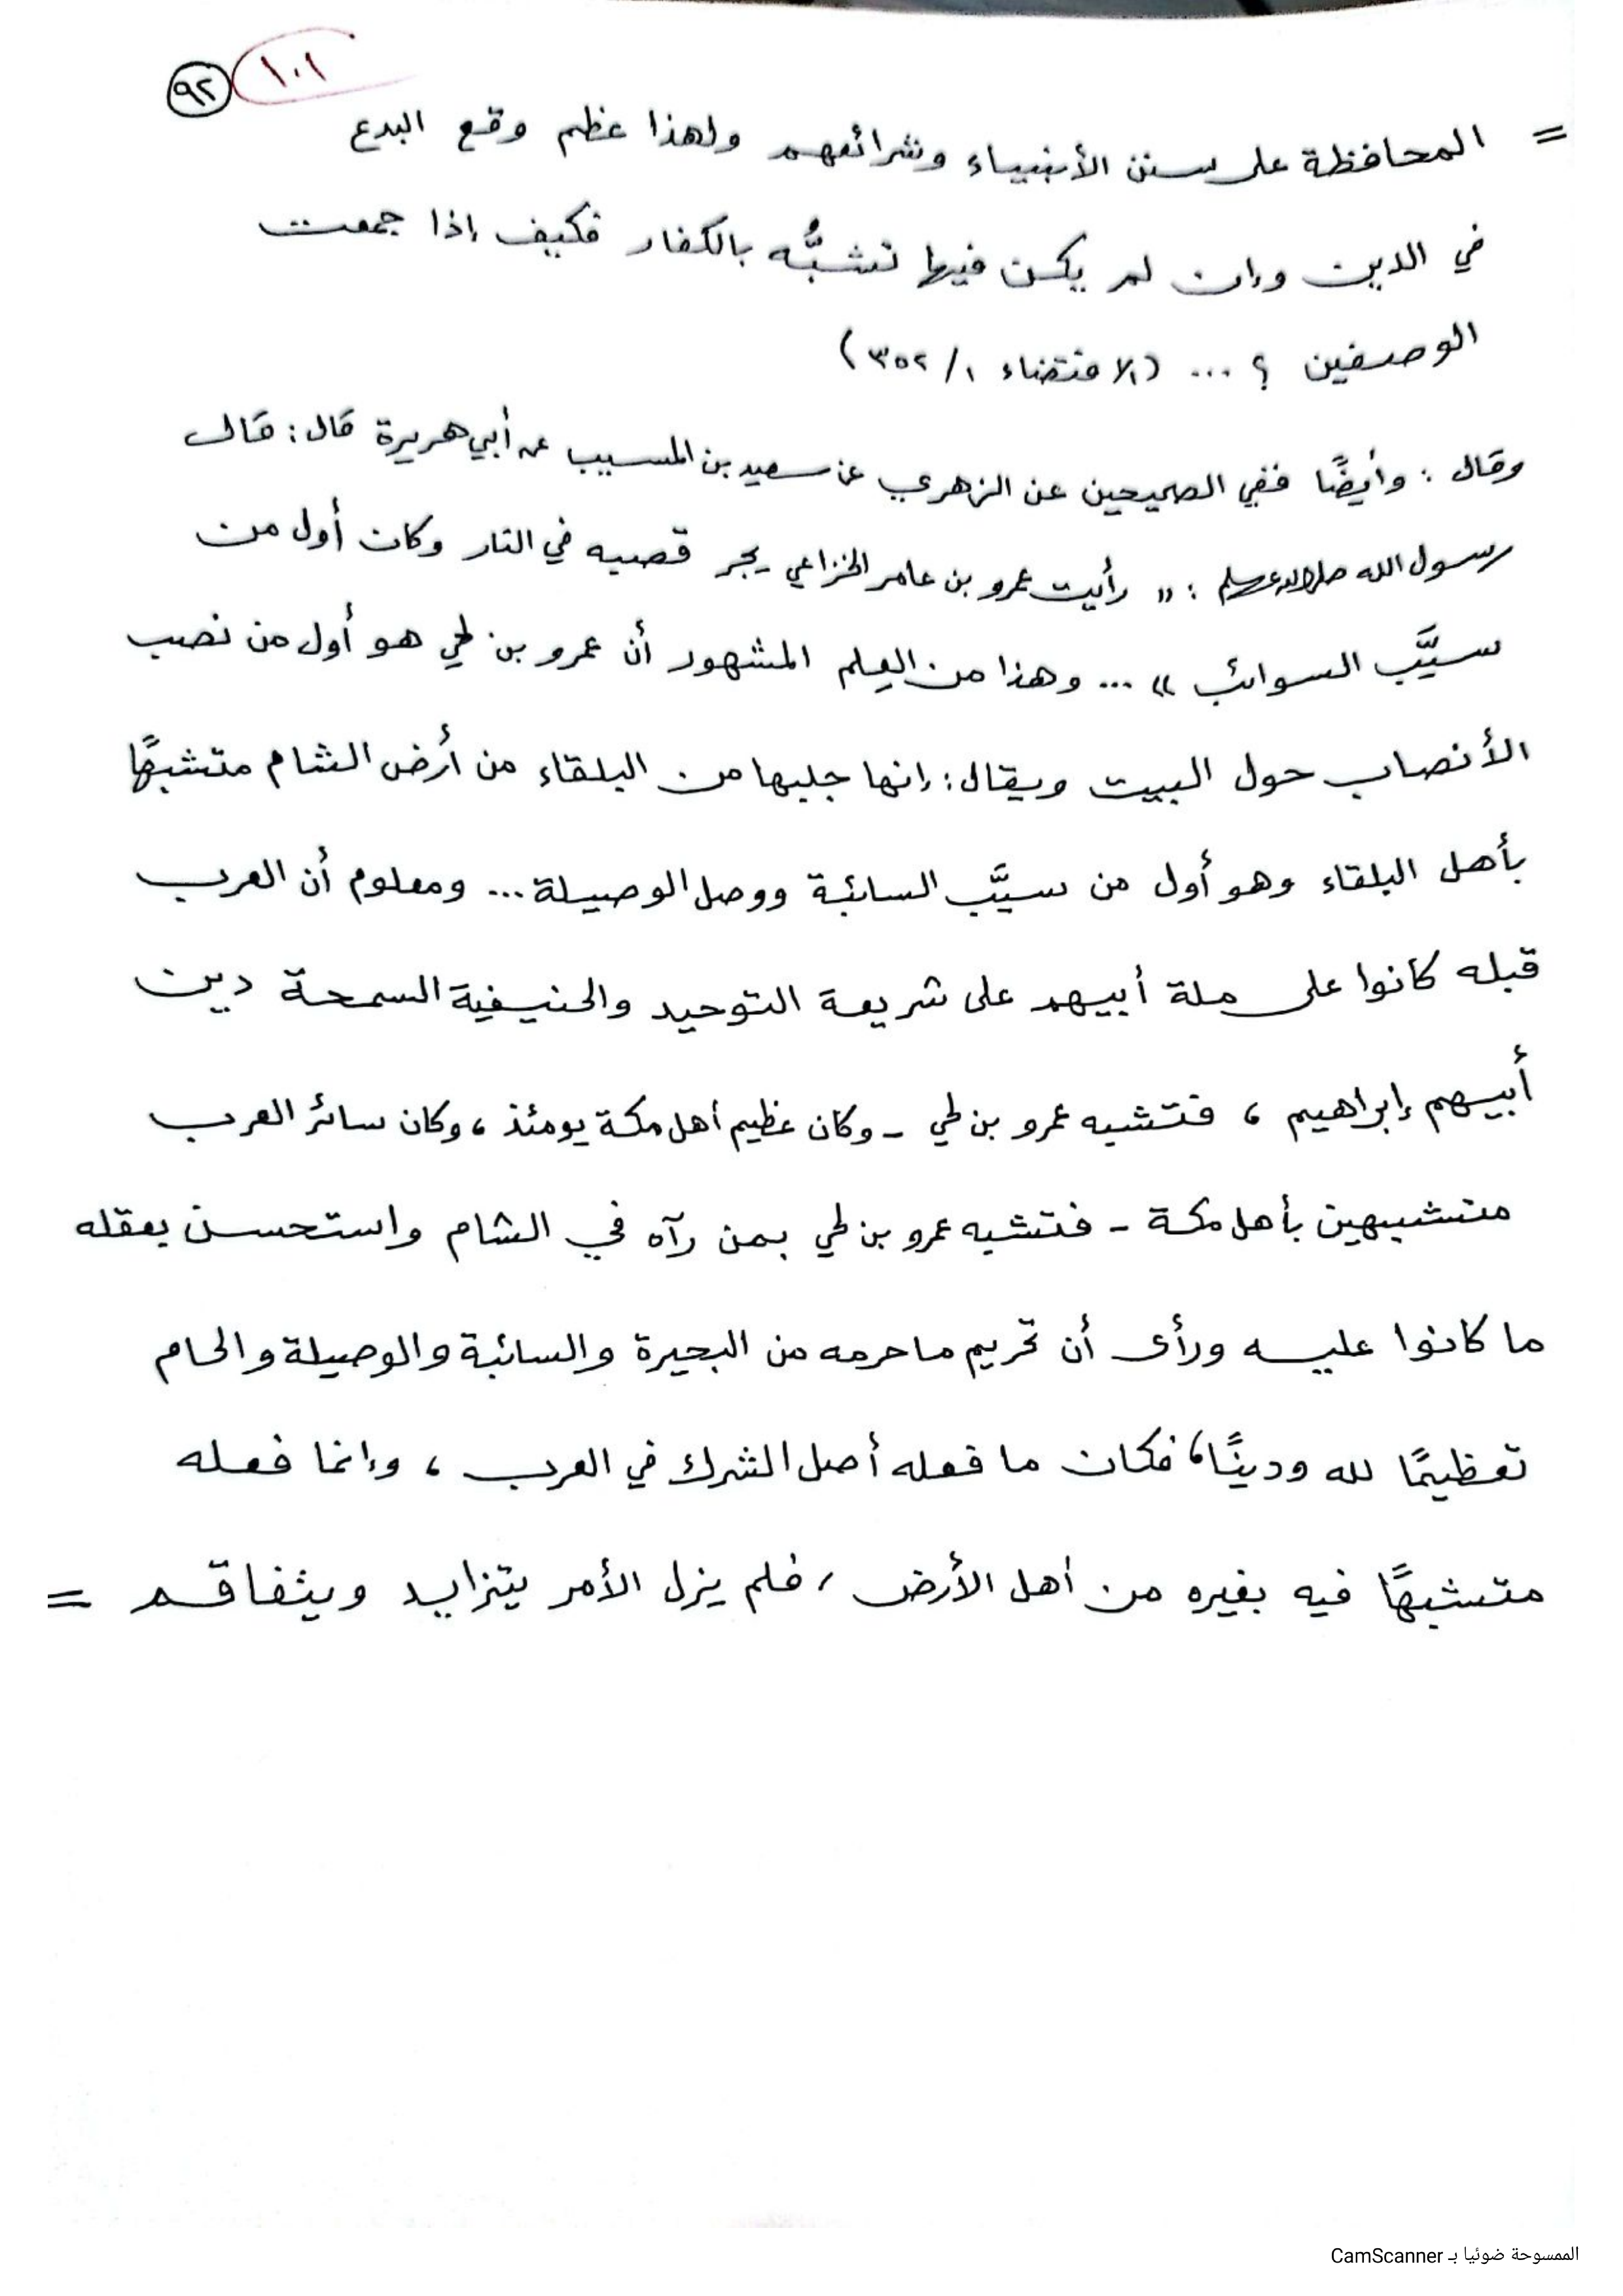 ١٠١ ٩٢
= المحافظة على سنن الأنبياء وشرائعهم ولهذا عظم وقع البدع
في الدين وإن لم يكن فيها تشبُّه بالكفار فكيف إذا جمعت
الوصفين ؟ ... (الاقتضاء ١/ ٣٥٢)
وقال : وأيضًا ففي الصحيحين عن الزهري عن سعيد بن المسيب عن أبي هريرة قال : قال
رسول الله صلى الله عليه وسلم : " رأيت عمرو بن عامر الخزاعي يجر قصبه في النار وكان أول من
سيَّب السوائب " ... وهذا من العلم المشهور أن عمرو بن لحي هو أول من نصب
الأنصاب حول البيت ويقال : إنها جلبها من البلقاء من أرض الشام متشبهًا
بأهل البلقاء وهو أول من سيَّب السائبة ووصل الوصيلة ... ومعلوم أن العرب
قبله كانوا على ملة أبيهم على شريعة التوحيد والحنيفية السمحة دين
أبيهم إبراهيم ، فتشبه عمرو بن لحي - وكان عظيم أهل مكة يومئذ ، وكان سائر العرب
متشبهين بأهل مكة - فتشبه عمرو بن لحي بمن رآه في الشام واستحسن بعقله
ما كانوا عليه ورأى أن تحريم ما حرمه من البحيرة والسائبة والوصيلة والحام
تعظيمًا لله ودينًا ، فكان ما فعله أصل الشرك في العرب ، وإنما فعله
متشبهًا فيه بغيره من أهل الأرض ، فلم يزل الأمر يتزايد ويتفاقم =
الممسوحة ضوئيا بـ CamScanner